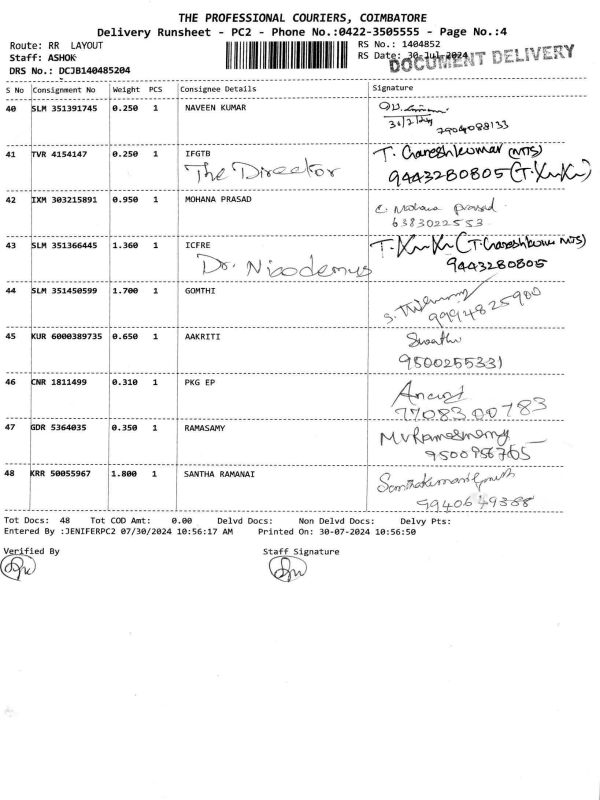 THE PROFESSIONAL COURIERS, COIMBATORE
Delivery Runsheet - PC2 - Phone No.:0422-3505555 - Page No.:4
Route: RR LAYOUT
RS No.: 1404852
Staff: ASHOK
RS Date: 30-Jul-2024
DOCUMENT DELIVERY
DRS No.: DCJB140485204
S No Consignment No Weight PCS Consignee Details Signature
40 SLM 351391745 0.250 1 NAVEEN KUMAR
7904088133
41 TVR 4154147 0.250 1 IFGTB T. Ganeshkumar (MTS)
The Director 9443280805
42 IXM 303215891 0.950 1 MOHANA PRASAD C. Mohana prasad
6383022553
43 SLM 351366445 1.360 1 ICFRE (T. Ganeshkumar MTS)
Dr. Nicodemus 9443280805
44 SLM 351450599 1.700 1 GOMTHI
9994825980
45 KUR 6000389735 0.650 1 AAKRITI Swathi
9500255331
46 CNR 1811499 0.310 1 PKG EP
7708300783
47 GDR 5364035 0.350 1 RAMASAMY
9500956765
48 KRR 50055967 1.800 1 SANTHA RAMANAI
9940649388
Tot Docs: 48 Tot COD Amt: 0.00 Delvd Docs: Non Delvd Docs: Delvy Pts:
Entered By :JENIFERPC2 07/30/2024 10:56:17 AM Printed On: 30-07-2024 10:56:50
Verified By Staff Signature